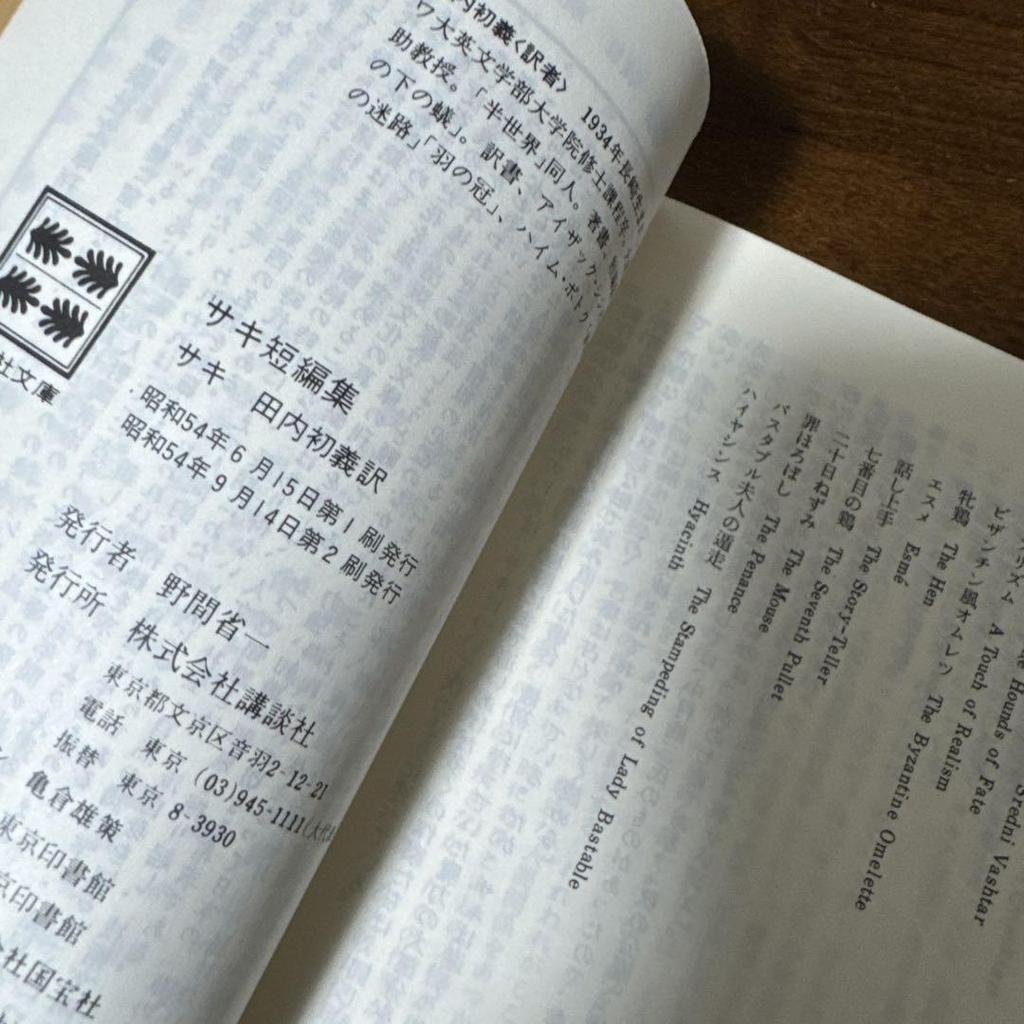 内初義〈訳者〉 1934年長崎生
ワ大英文学部大学院修士課程卒
助教授。「半世界」同人。著書
の下の蟻」。訳書、アイザック・シン
の迷路」「羽の冠」、ハイム・ポトク
社文庫
サキ短編集
サキ 田内初義訳
昭和54年6月15日第1刷発行
昭和54年9月14日第2刷発行
発行者 野間省一
発行所 株式会社講談社
東京都文京区音羽2-12-21
電話 東京 (03)945-1111(大代表
振替 東京 8-3930
亀倉雄策
東京印書館
京印書館
会社国宝社
Sredni Vashtar
Hounds of Fate
リズム A Touch of Realism
ビザンチン風オムレツ The Byzantine Omelette
牝鶏 The Hen
エスメ Esmé
話し上手 The Story-Teller
七番目の鶏 The Seventh Pullet
二十日ねずみ The Mouse
罪ほろぼし The Penance
バスタブル夫人の遁走 The Stampeding of Lady Bastable
ハイヤシンス Hyacinth